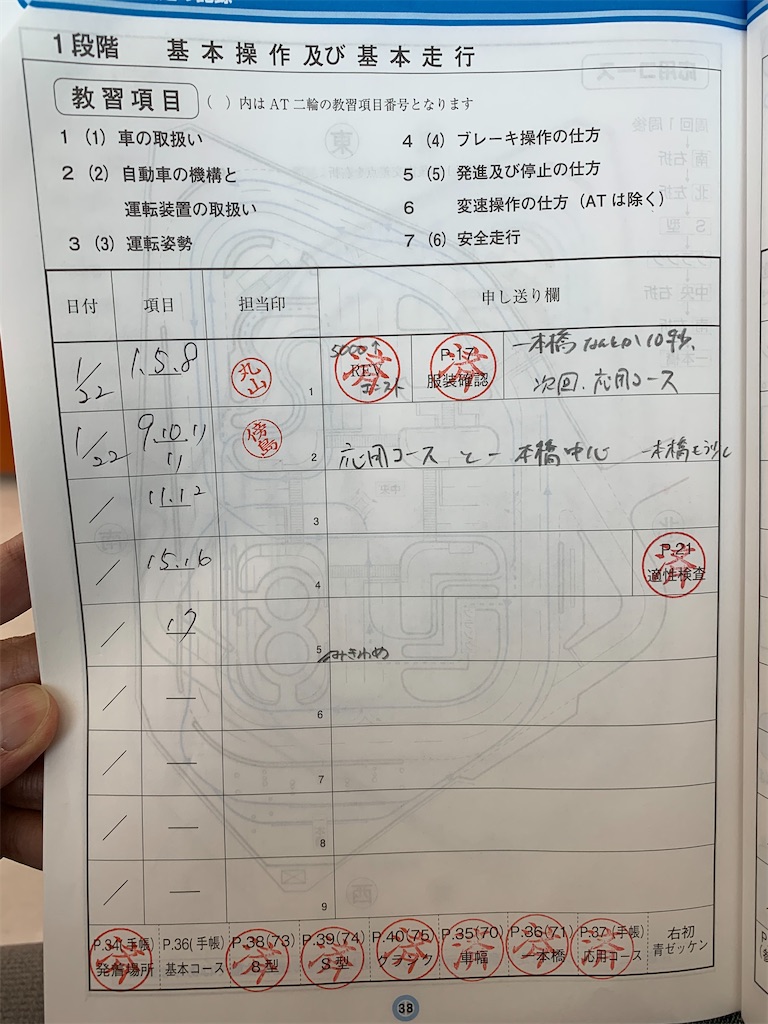 1段階 基本操作及び基本走行
教習項目 ( )内はAT二輪の教習項目番号となります
1 (1) 車の取扱い
2 (2) 自動車の機構と
運転装置の取扱い
3 (3) 運転姿勢
4 (4) ブレーキ操作の仕方
5 (5) 発進及び停止の仕方
6 変速操作の仕方(ATは除く)
7 (6) 安全走行
日付 項目 担当印 申し送り欄
1/22 1.5.8 丸山 1 5000↑ REV 済 P.17 服装確認 済 一本橋なんとか10秒、
次回、応用コース
1/22 9.10.11 傍島 2 応用コースと一本橋中心 一本橋もう少し
11
/ 11.12 3
/ 15.16 4 P.21 適性検査 済
/ 17 5 みきわめ
/ — 6
/ — 7
/ — 8
/ — 9
P.34(手帳) 発着場所 済
P.36(手帳) 基本コース
P.38(73) 8型 済
P.39(74) S型 済
P.40(75) クランク 済
P.35(70) 車幅 済
P.36(71) 一本橋 済
P.37(手帳) 応用コース 済
右初 青ゼッケン
38
東
応用コース
周回1周後
南 右折
北 左折
S 型
中央 右折
西